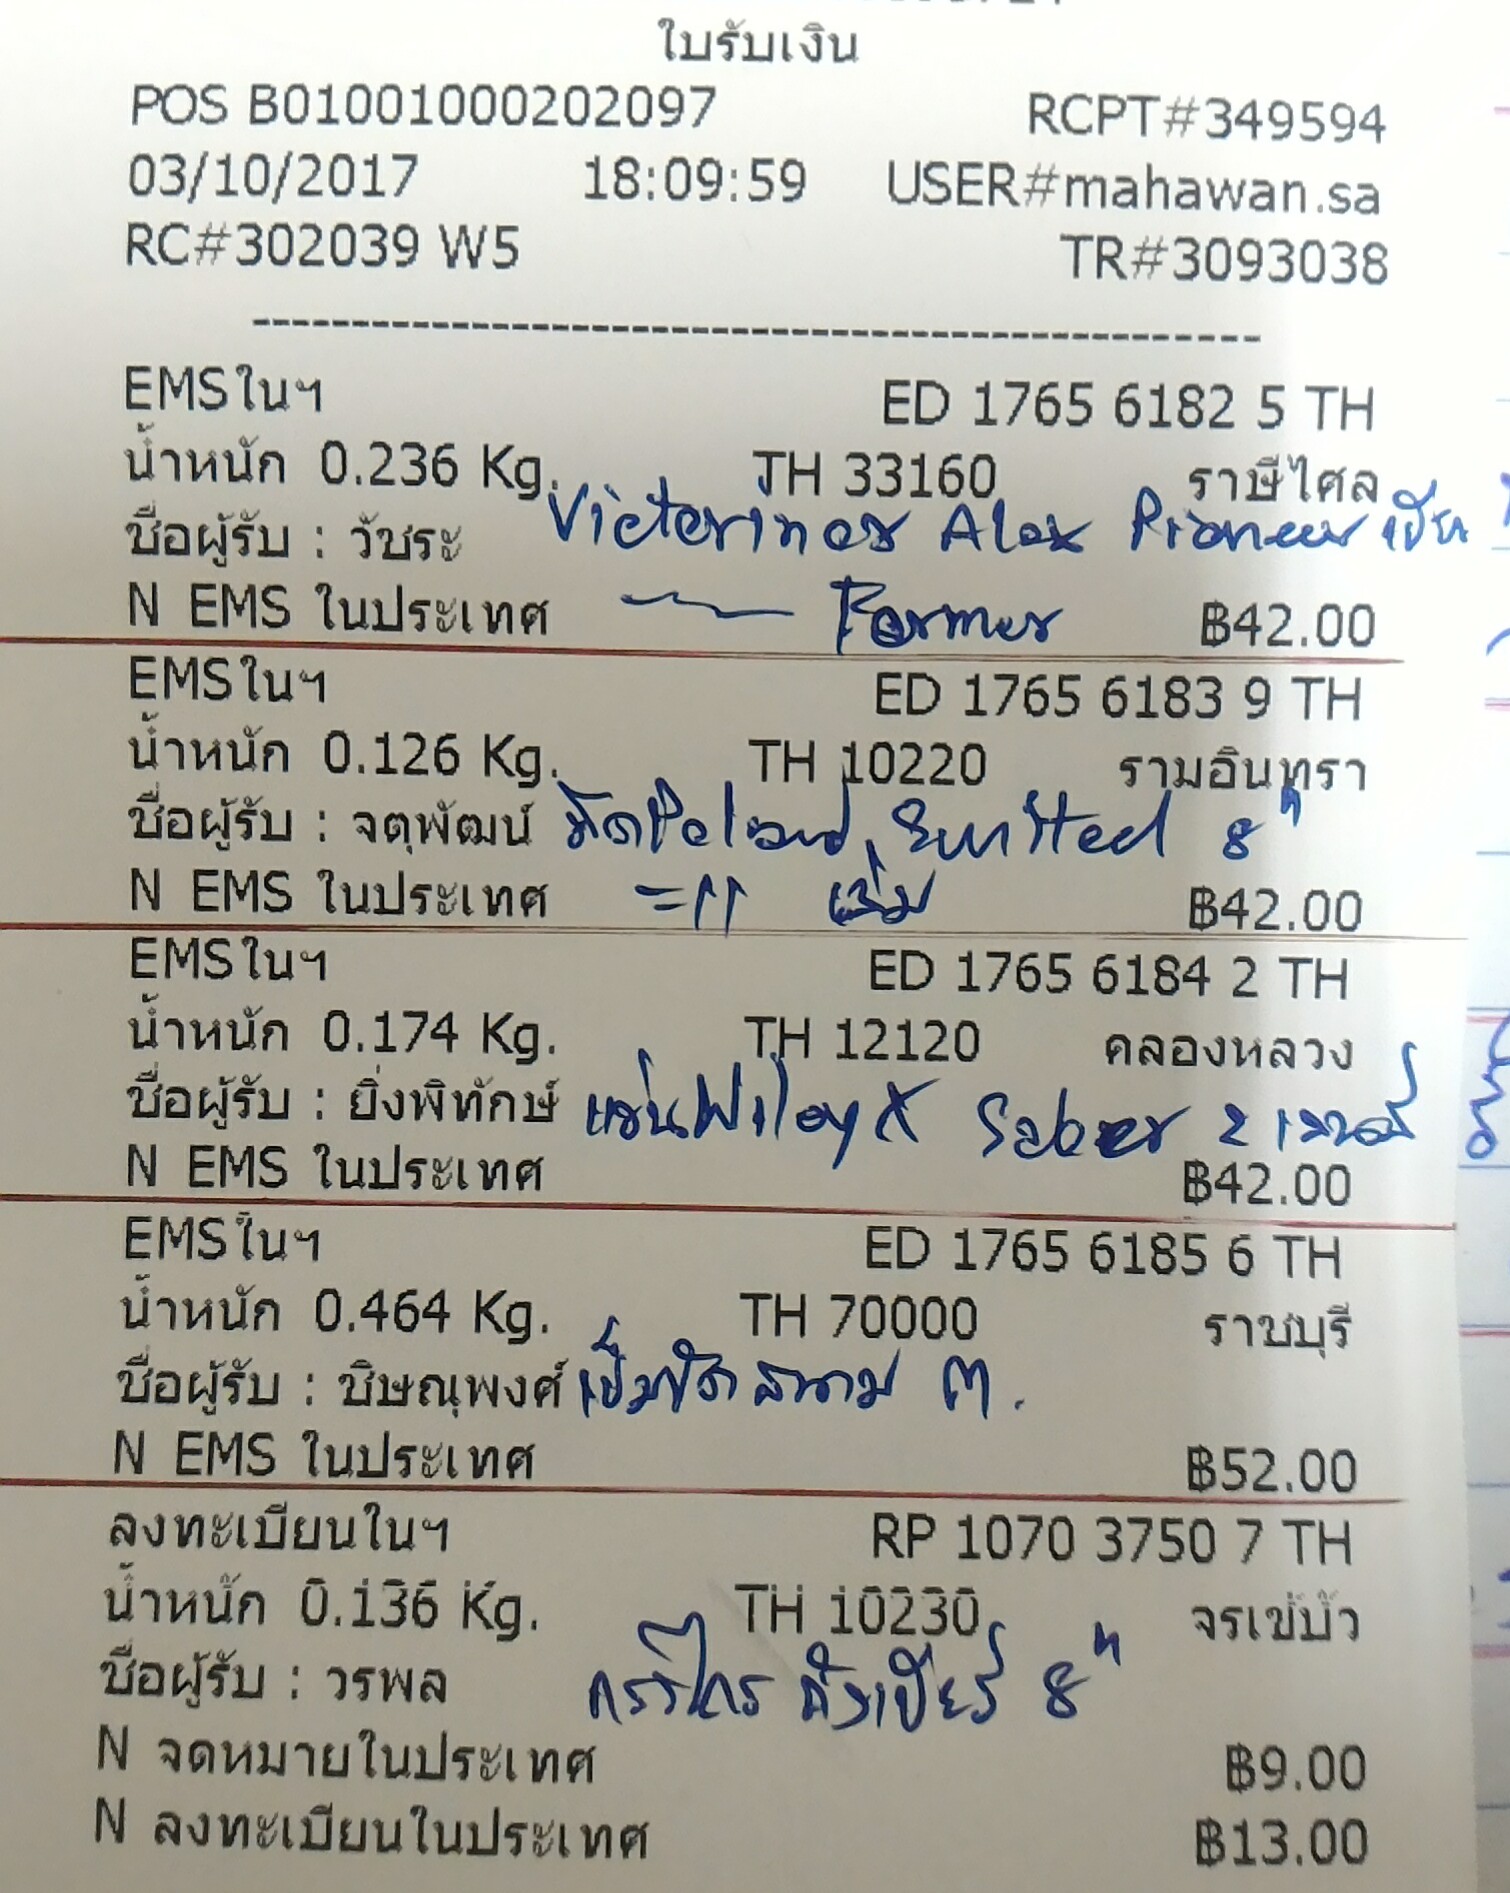 ใบรับเงิน
POS B01001000202097 RCPT#349594
03/10/2017 18:09:59 USER#mahawan.sa
RC#302039 W5 TR#3093038
--------------------------------------------------
EMSในฯ ED 1765 6182 5 TH
น้ำหนัก 0.236 Kg. TH 33160 ราษีไศล
ชื่อผู้รับ : วัชระ Victorinox Alox Pioneer
N EMS ในประเทศ Farmer ฿42.00
EMSในฯ ED 1765 6183 9 TH
น้ำหนัก 0.126 Kg. TH 10220 รามอินทรา
ชื่อผู้รับ : จตุพัฒน์ 8"
N EMS ในประเทศ ฿42.00
EMSในฯ ED 1765 6184 2 TH
น้ำหนัก 0.174 Kg. TH 12120 คลองหลวง
ชื่อผู้รับ : ยิ่งพิทักษ์ แว่นWileyX Saber 2 เลนส์
N EMS ในประเทศ ฿42.00
EMSในฯ ED 1765 6185 6 TH
น้ำหนัก 0.464 Kg. TH 70000 ราชบุรี
ชื่อผู้รับ : ชิษณุพงศ์ เข็มขัดสนาม ต.
N EMS ในประเทศ ฿52.00
ลงทะเบียนในฯ RP 1070 3750 7 TH
น้ำหนัก 0.136 Kg. TH 10230 จรเข้บัว
ชื่อผู้รับ : วรพล กรรไกร 8"
N จดหมายในประเทศ ฿9.00
N ลงทะเบียนในประเทศ ฿13.00